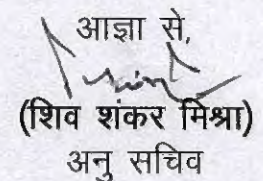 आज्ञा से,
(शिव शंकर मिश्रा)
अनु सचिव